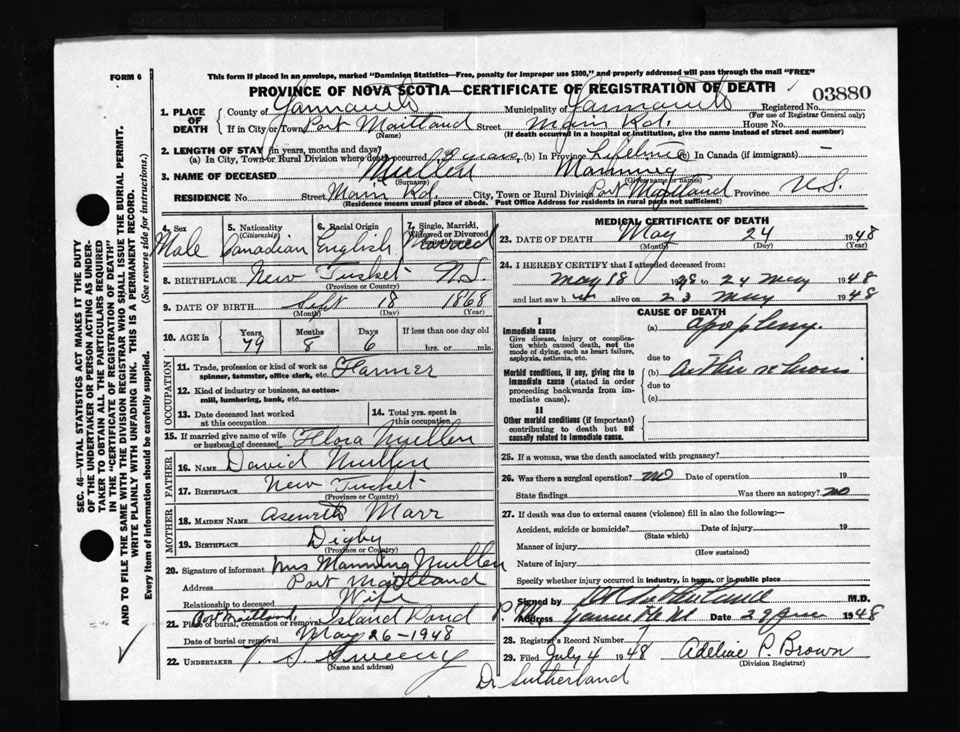 FORM 6
This form if placed in an envelope, marked "Dominion Statistics—Free, penalty for improper use $300," and properly addressed will pass through the mail "FREE"
PROVINCE OF NOVA SCOTIA—CERTIFICATE OF REGISTRATION OF DEATH
03880
1. PLACE OF DEATH
County of Yarmouth Municipality of Yarmouth Registered No.
(For use of Registrar General only)
If in City or Town Port Maitland Street Main Rd. House No.
(Name) (If death occurred in a hospital or institution, give the name instead of street and number)
2. LENGTH OF STAY (in years, months and days)
(a) In City, Town or Rural Division where death occurred years (b) In Province Lifetime (c) In Canada (if immigrant) —
3. NAME OF DECEASED Mullen Manning
(Surname) (Given name or names)
RESIDENCE No. Street Main Rd. City, Town or Rural Division Port Maitland Province N.S.
(Residence means usual place of abode. Post Office Address for residents in rural parts not sufficient)
4. Sex 5. Nationality (Citizenship) 6. Racial Origin 7. Single, Married, Widowed or Divorced
Male Canadian English Married
8. BIRTHPLACE New Tusket N.S.
(Province or Country)
9. DATE OF BIRTH Sept 18 1868
(Month) (Day) (Year)
10. AGE in Years Months Days If less than one day
79 8 6 hrs. or min.
OCCUPATION
11. Trade, profession or kind of work as spinner, teamster, office clerk, etc. Farmer
12. Kind of industry or business, as cotton-mill, lumbering, bank, etc.
13. Date deceased last worked at this occupation
14. Total yrs. spent in this occupation
15. If married give name of wife or husband of deceased Flora Mullen
FATHER
16. NAME David Mullen
17. BIRTHPLACE New Tusket
(Province or Country)
MOTHER
18. MAIDEN NAME Aseneth Marr
19. BIRTHPLACE Digby
(Province or Country)
20. Signature of informant Mrs Manning Mullen
Address Port Maitland
Relationship to deceased Wife
21. Place of burial, cremation or removal Port Maitland, Island Pond
Date of burial or removal May 26-1948
22. UNDERTAKER V. S. Sweeny
(Name and address)
MEDICAL CERTIFICATE OF DEATH
23. DATE OF DEATH May 24 1948
(Month) (Day) (Year)
24. I HEREBY CERTIFY that I attended deceased from:
May 18 1948 to 24 May 1948
and last saw h alive on 23 May 1948
CAUSE OF DEATH
I
Immediate cause
Give disease, injury or complication which caused death, not the mode of dying, such as heart failure, asphyxia, asthenia, etc.
(a) Apoplexy.
due to
Morbid conditions, if any, giving rise to immediate cause (stated in order proceeding backwards from immediate cause).
(b)
due to
(c)
II
Other morbid conditions (if important) contributing to death but not causally related to immediate cause.
25. If a woman, was the death associated with pregnancy?
26. Was there a surgical operation? no Date of operation 19
State findings Was there an autopsy? no
27. If death was due to external causes (violence) fill in also the following:—
Accident, suicide or homicide? Date of injury 19
(State which)
Manner of injury
(How sustained)
Nature of injury
Specify whether injury occurred in industry, in home, or in public place
Signed by M.D.
Address Date 29 June 1948
28. Registrar's Record Number 7
29. Filed July 4 1948 Adeline P. Brown
(Division Registrar)
Dr Sutherland
SEC. 46—VITAL STATISTICS ACT MAKES IT THE DUTY
OF THE UNDERTAKER OR PERSON ACTING AS UNDER-
TAKER TO OBTAIN ALL THE PARTICULARS REQUIRED
IN THE "CERTIFICATE OF REGISTRATION OF DEATH"
AND TO FILE THE SAME WITH THE DIVISION REGISTRAR WHO SHALL ISSUE THE BURIAL PERMIT.
WRITE PLAINLY WITH UNFADING INK. THIS IS A PERMANENT RECORD.
Every item of information should be carefully supplied. (See reverse side for instructions.)